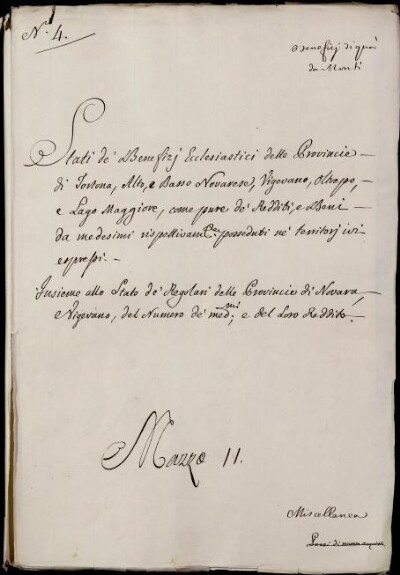 N.° 4.
Benefizj di quà
da Monti
Stati de' Benefizj Ecclesiastici delle Provincie
di Tortona, Alto, e Basso Novarese, Vigevano, Oltrepo,
e Lago Maggiore, come pure de' Redditi, e Beni
da medesimi rispettivam.te posseduti ne' territorj ivi
espressi.
Insieme allo Stato de' Regolari delle Provincie di Novara,
e Vigevano, del Numero de' med.mi; e del Loro Reddito.
Mazzo 11.
Miscellanea
Paesi di nuovo acquisto